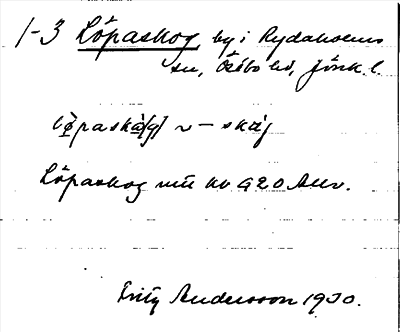 1-3 Löpaskog by i Rydaholms
sn, Östbo hd, Jönk. l.
löpaskå[g] ~ - skåg
Löpaskog
Fritz Andersson 1930.